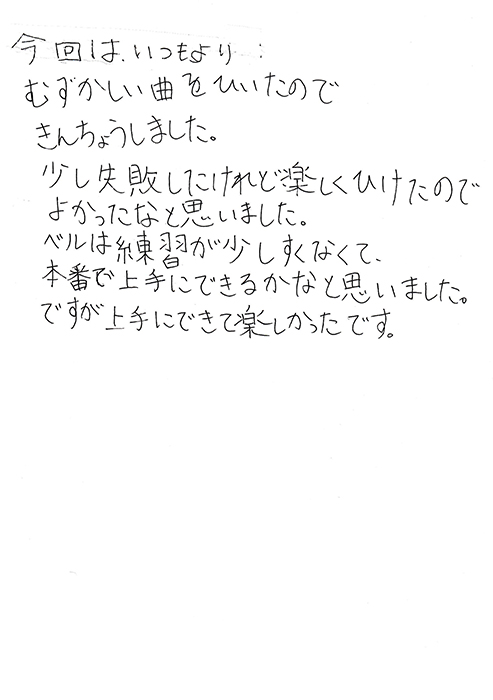 今回は、いつもより
むずかしい曲をひいたので
きんちょうしました。
少し失敗したけれど楽しくひけたので
よかったなと思いました。
ベルは練習が少しすくなくて、
本番で上手にできるかなと思いました。
ですが上手にできて楽しかったです。